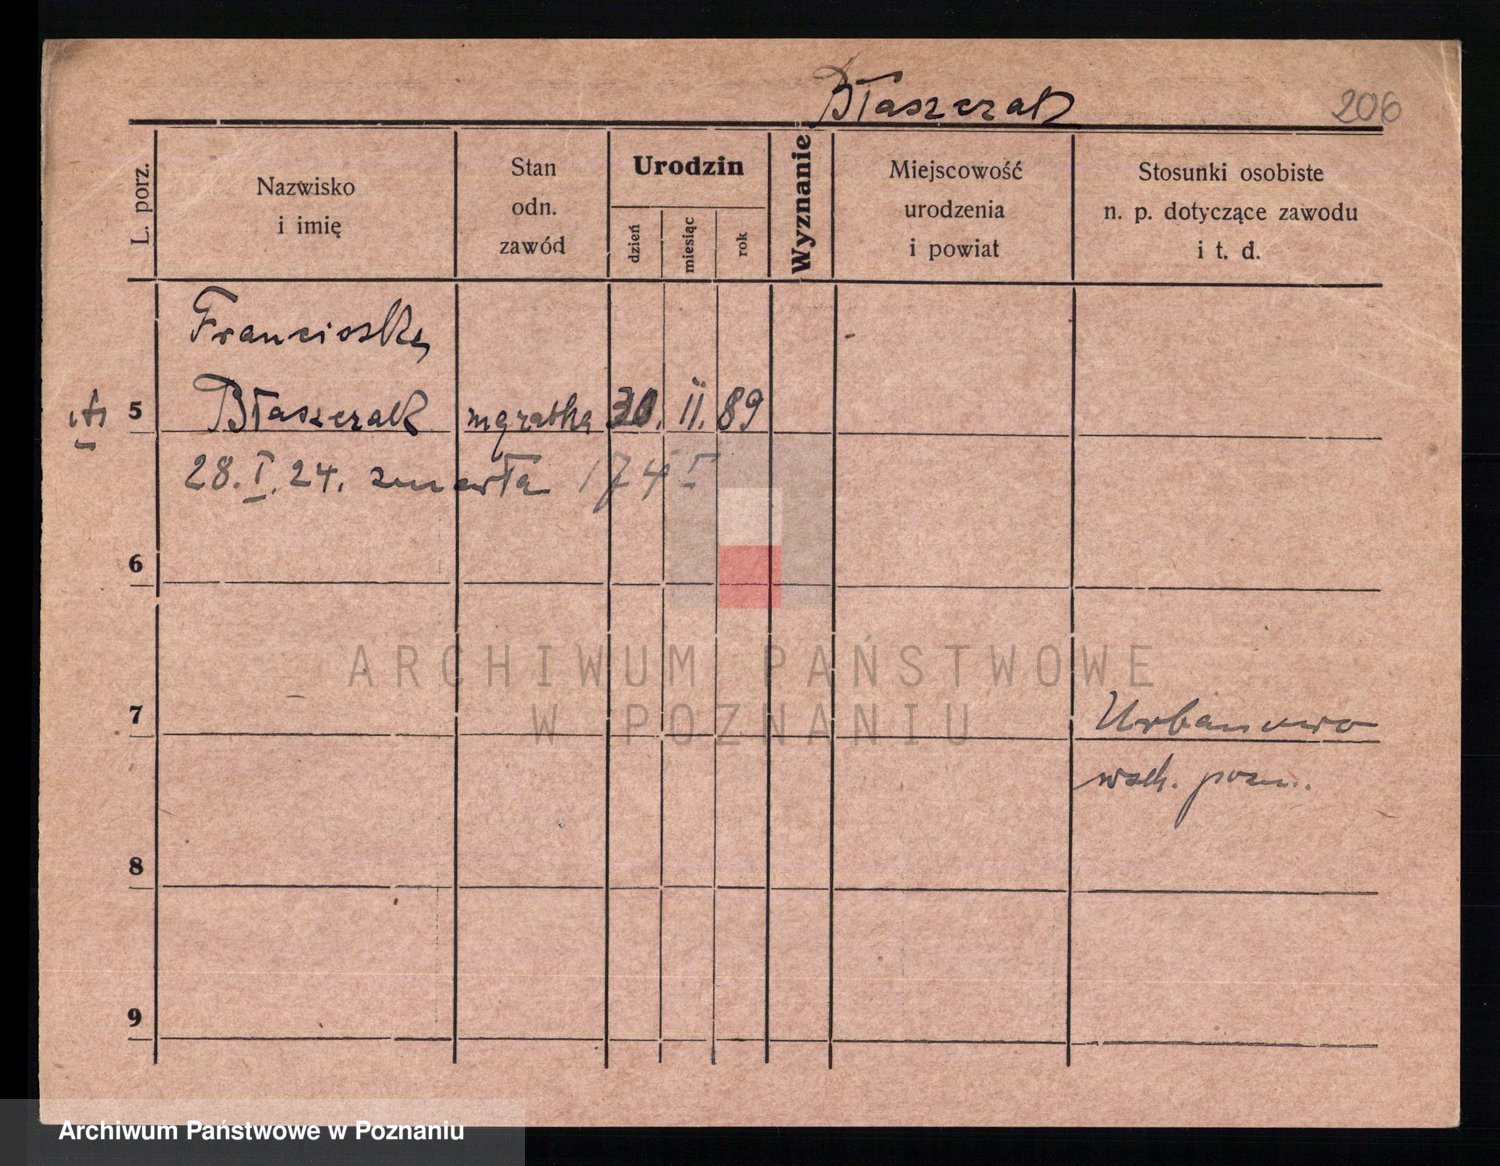 Błaszczak 206
L. porz.
Nazwisko
i imię
Stan
odn.
zawód
Urodzin
dzień
miesiąc
rok
Wyznanie
Miejscowość
urodzenia
i powiat
Stosunki osobiste
n. p. dotyczące zawodu
i t. d.
Franciszka
5 Błaszczak mężatka 30. II. 89
28. I. 24. zmarła 174
6
ARCHIWUM PAŃSTWOWE
W POZNANIU
7 Urbanowo
wsch. pozn.
8
9
Archiwum Państwowe w Poznaniu